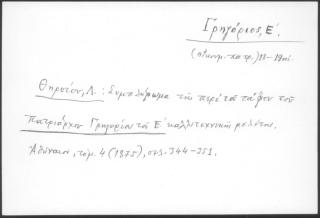 Γρηγόριος, Ε΄.
(οἰκουμ. πατρ.) 18-19 αἰ.
Θηρεῖου, Λ.: Συμπλήρωμα τῆς περί τοῦ τάφου τοῦ
Πατριάρχου Γρηγορίου τοῦ Ε΄ καλλιτεχνικῆς μελέτης.
Ἀθήναιον, τόμ. 4 (1875), σσ. 344-351.